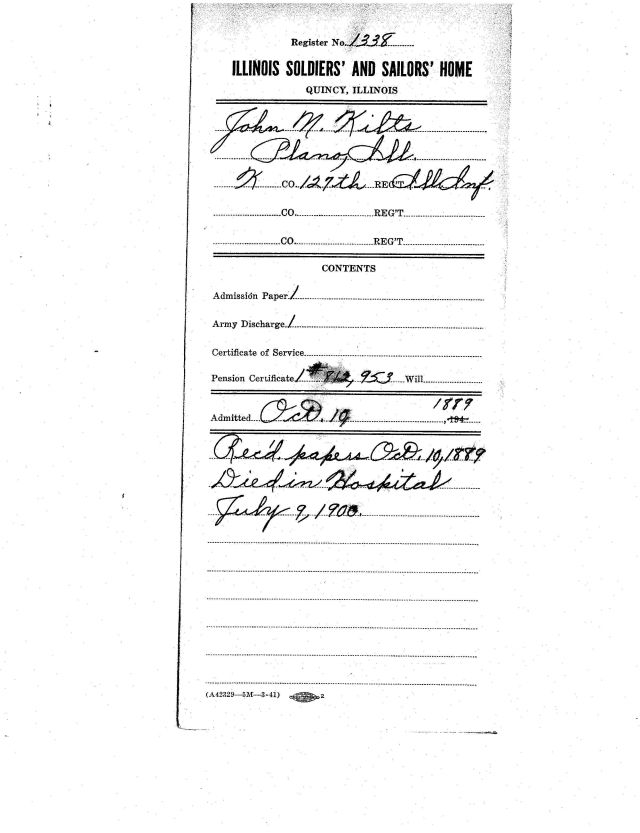 Register No. 1338
ILLINOIS SOLDIERS' AND SAILORS' HOME
QUINCY, ILLINOIS
John M. Kilts
Plano, Ill.
K CO. 127th REG'T Ill Inf.
CO. REG'T
CO. REG'T
CONTENTS
Admission Paper 1
Army Discharge 1
Certificate of Service
Pension Certificate 1 # 812,953 Will
Admitted Oct. 19, 1889 194
Rec'd. papers Oct. 10, 1889
Died in Hospital
July 9, 1900.
(A42329—5M—3-41) 2